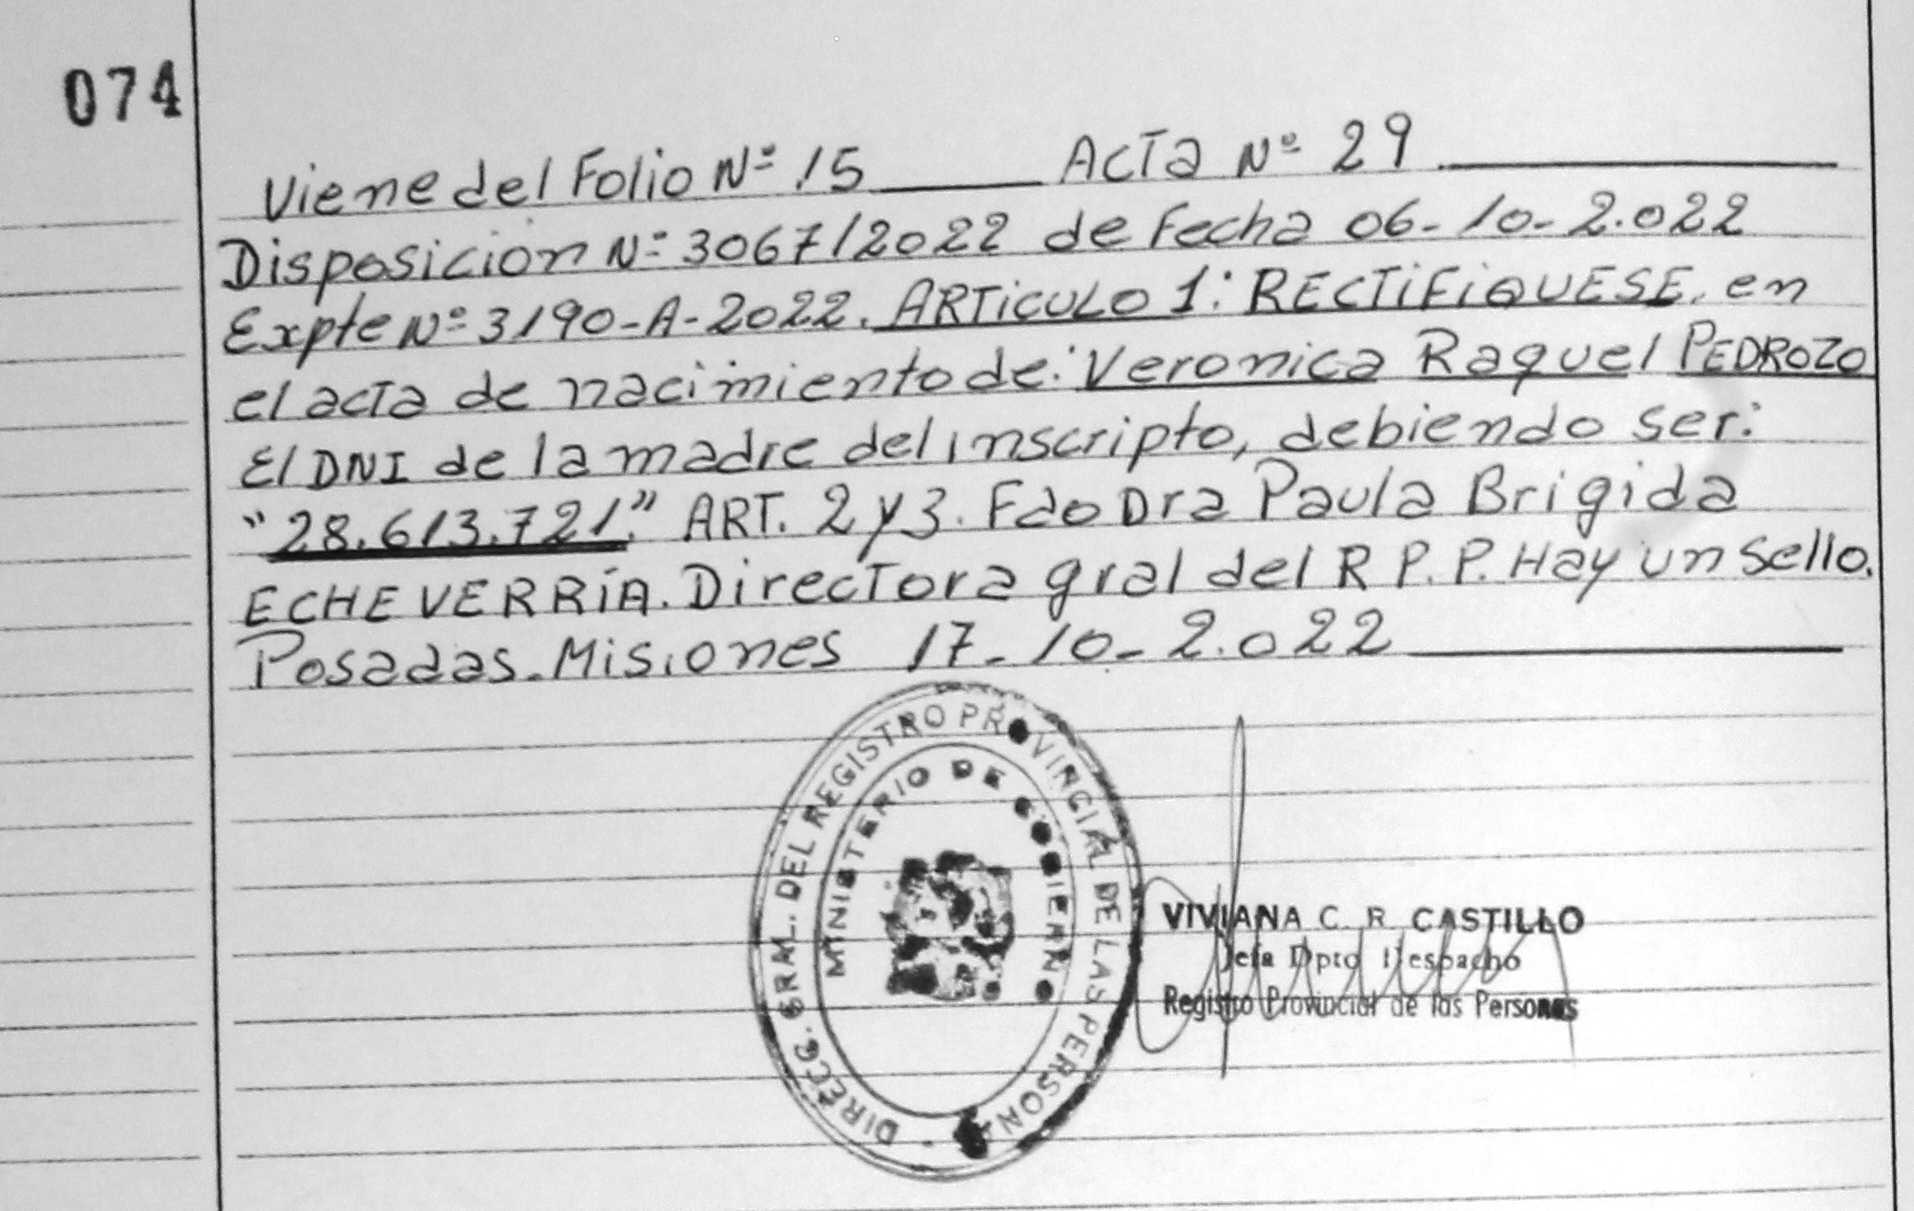 074
Viene del Folio Nº 15 ACTA Nº 29
Disposición Nº 3067/2022 de Fecha 06-10-2.022
Expte Nº 3190-A-2022. ARTICULO 1: RECTIFIQUESE. en
el acta de nacimiento de: Veronica Raquel PEDROZO
El DNI de la madre del inscripto, debiendo ser:
"28.613.721." ART. 2 y 3. Fdo Dra Paula Brigida
ECHEVERRÍA. Directora gral del R P. P. Hay un sello.
Posadas. Misiones 17-10-2.022
DIRECC. GRAL. DEL REGISTRO PROVINCIAL DE LAS PERSONAS
MINISTERIO DE GOBIERNO
VIVIANA C. R. CASTILLO
Jefa Dpto Despacho
Registro Provincial de las Personas